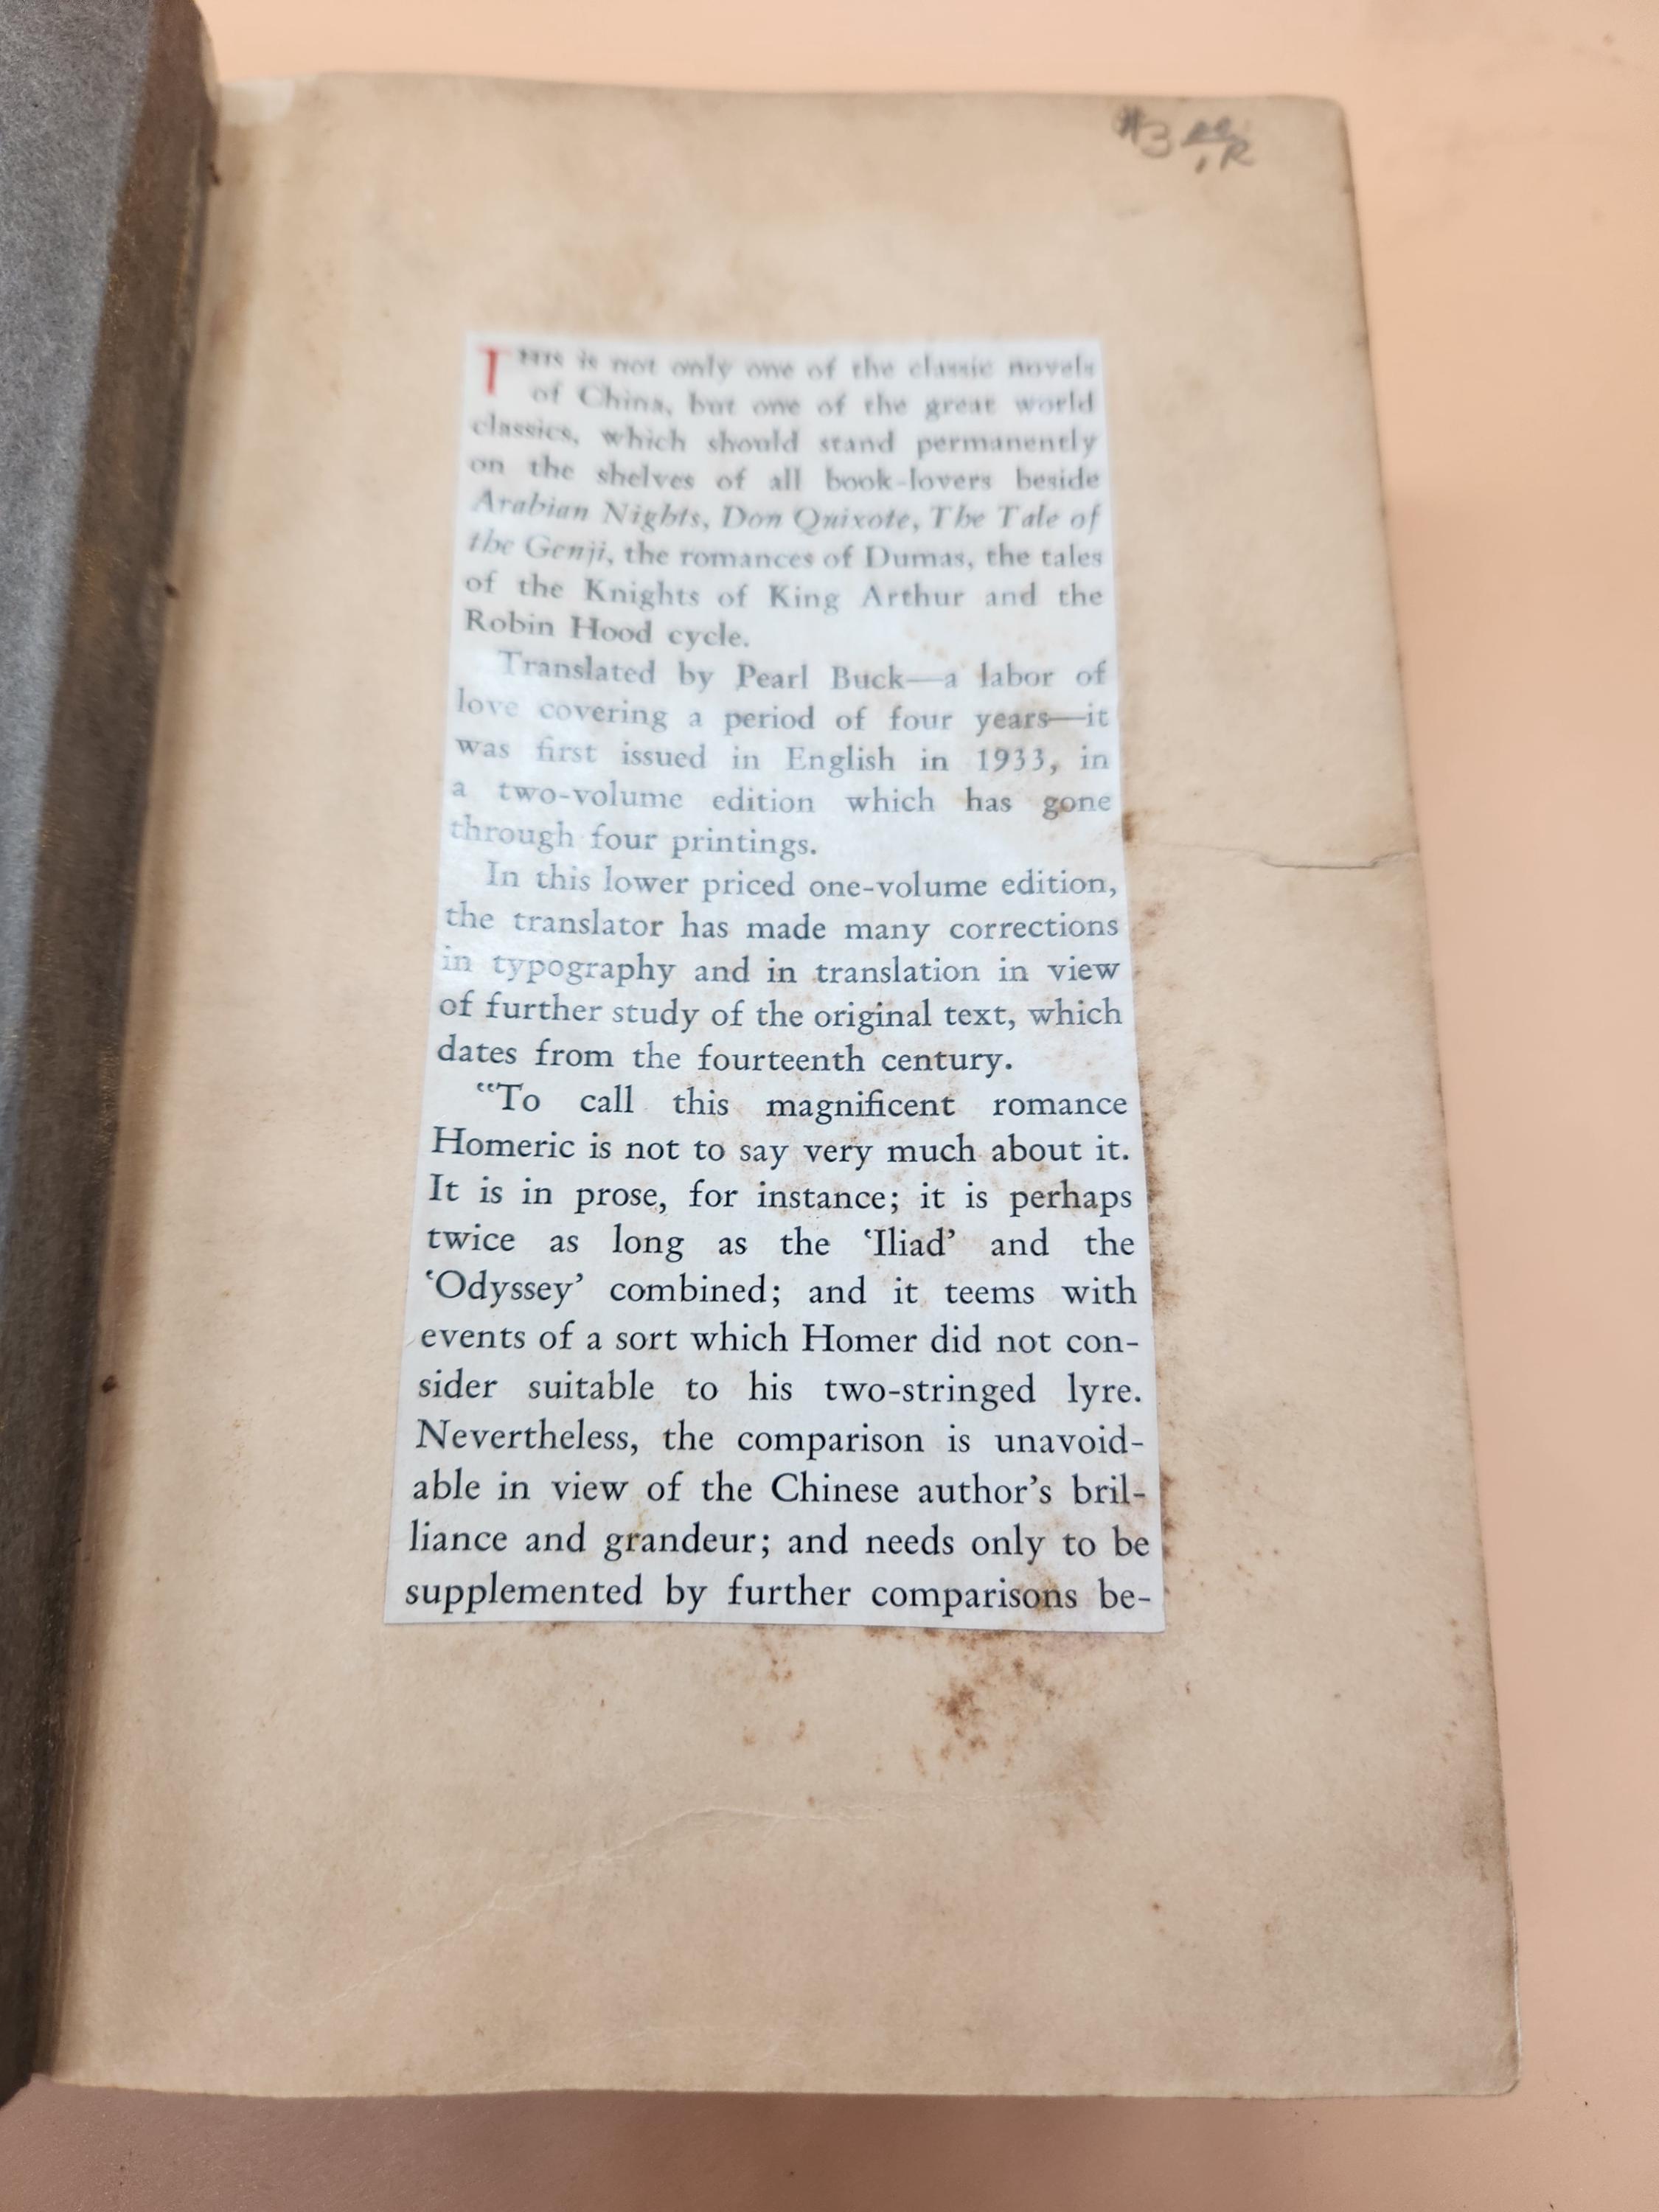 THIS is not only one of the classic novels
of China, but one of the great world
classics, which should stand permanently
on the shelves of all book-lovers beside
Arabian Nights, Don Quixote, The Tale of
the Genji, the romances of Dumas, the tales
of the Knights of King Arthur and the
Robin Hood cycle.
Translated by Pearl Buck—a labor of
love covering a period of four years—it
was first issued in English in 1933, in
a two-volume edition which has gone
through four printings.
In this lower priced one-volume edition,
the translator has made many corrections
in typography and in translation in view
of further study of the original text, which
dates from the fourteenth century.
“To call this magnificent romance
Homeric is not to say very much about it.
It is in prose, for instance; it is perhaps
twice as long as the ‘Iliad’ and the
‘Odyssey’ combined; and it teems with
events of a sort which Homer did not con-
sider suitable to his two-stringed lyre.
Nevertheless, the comparison is unavoid-
able in view of the Chinese author’s bril-
liance and grandeur; and needs only to be
supplemented by further comparisons be-